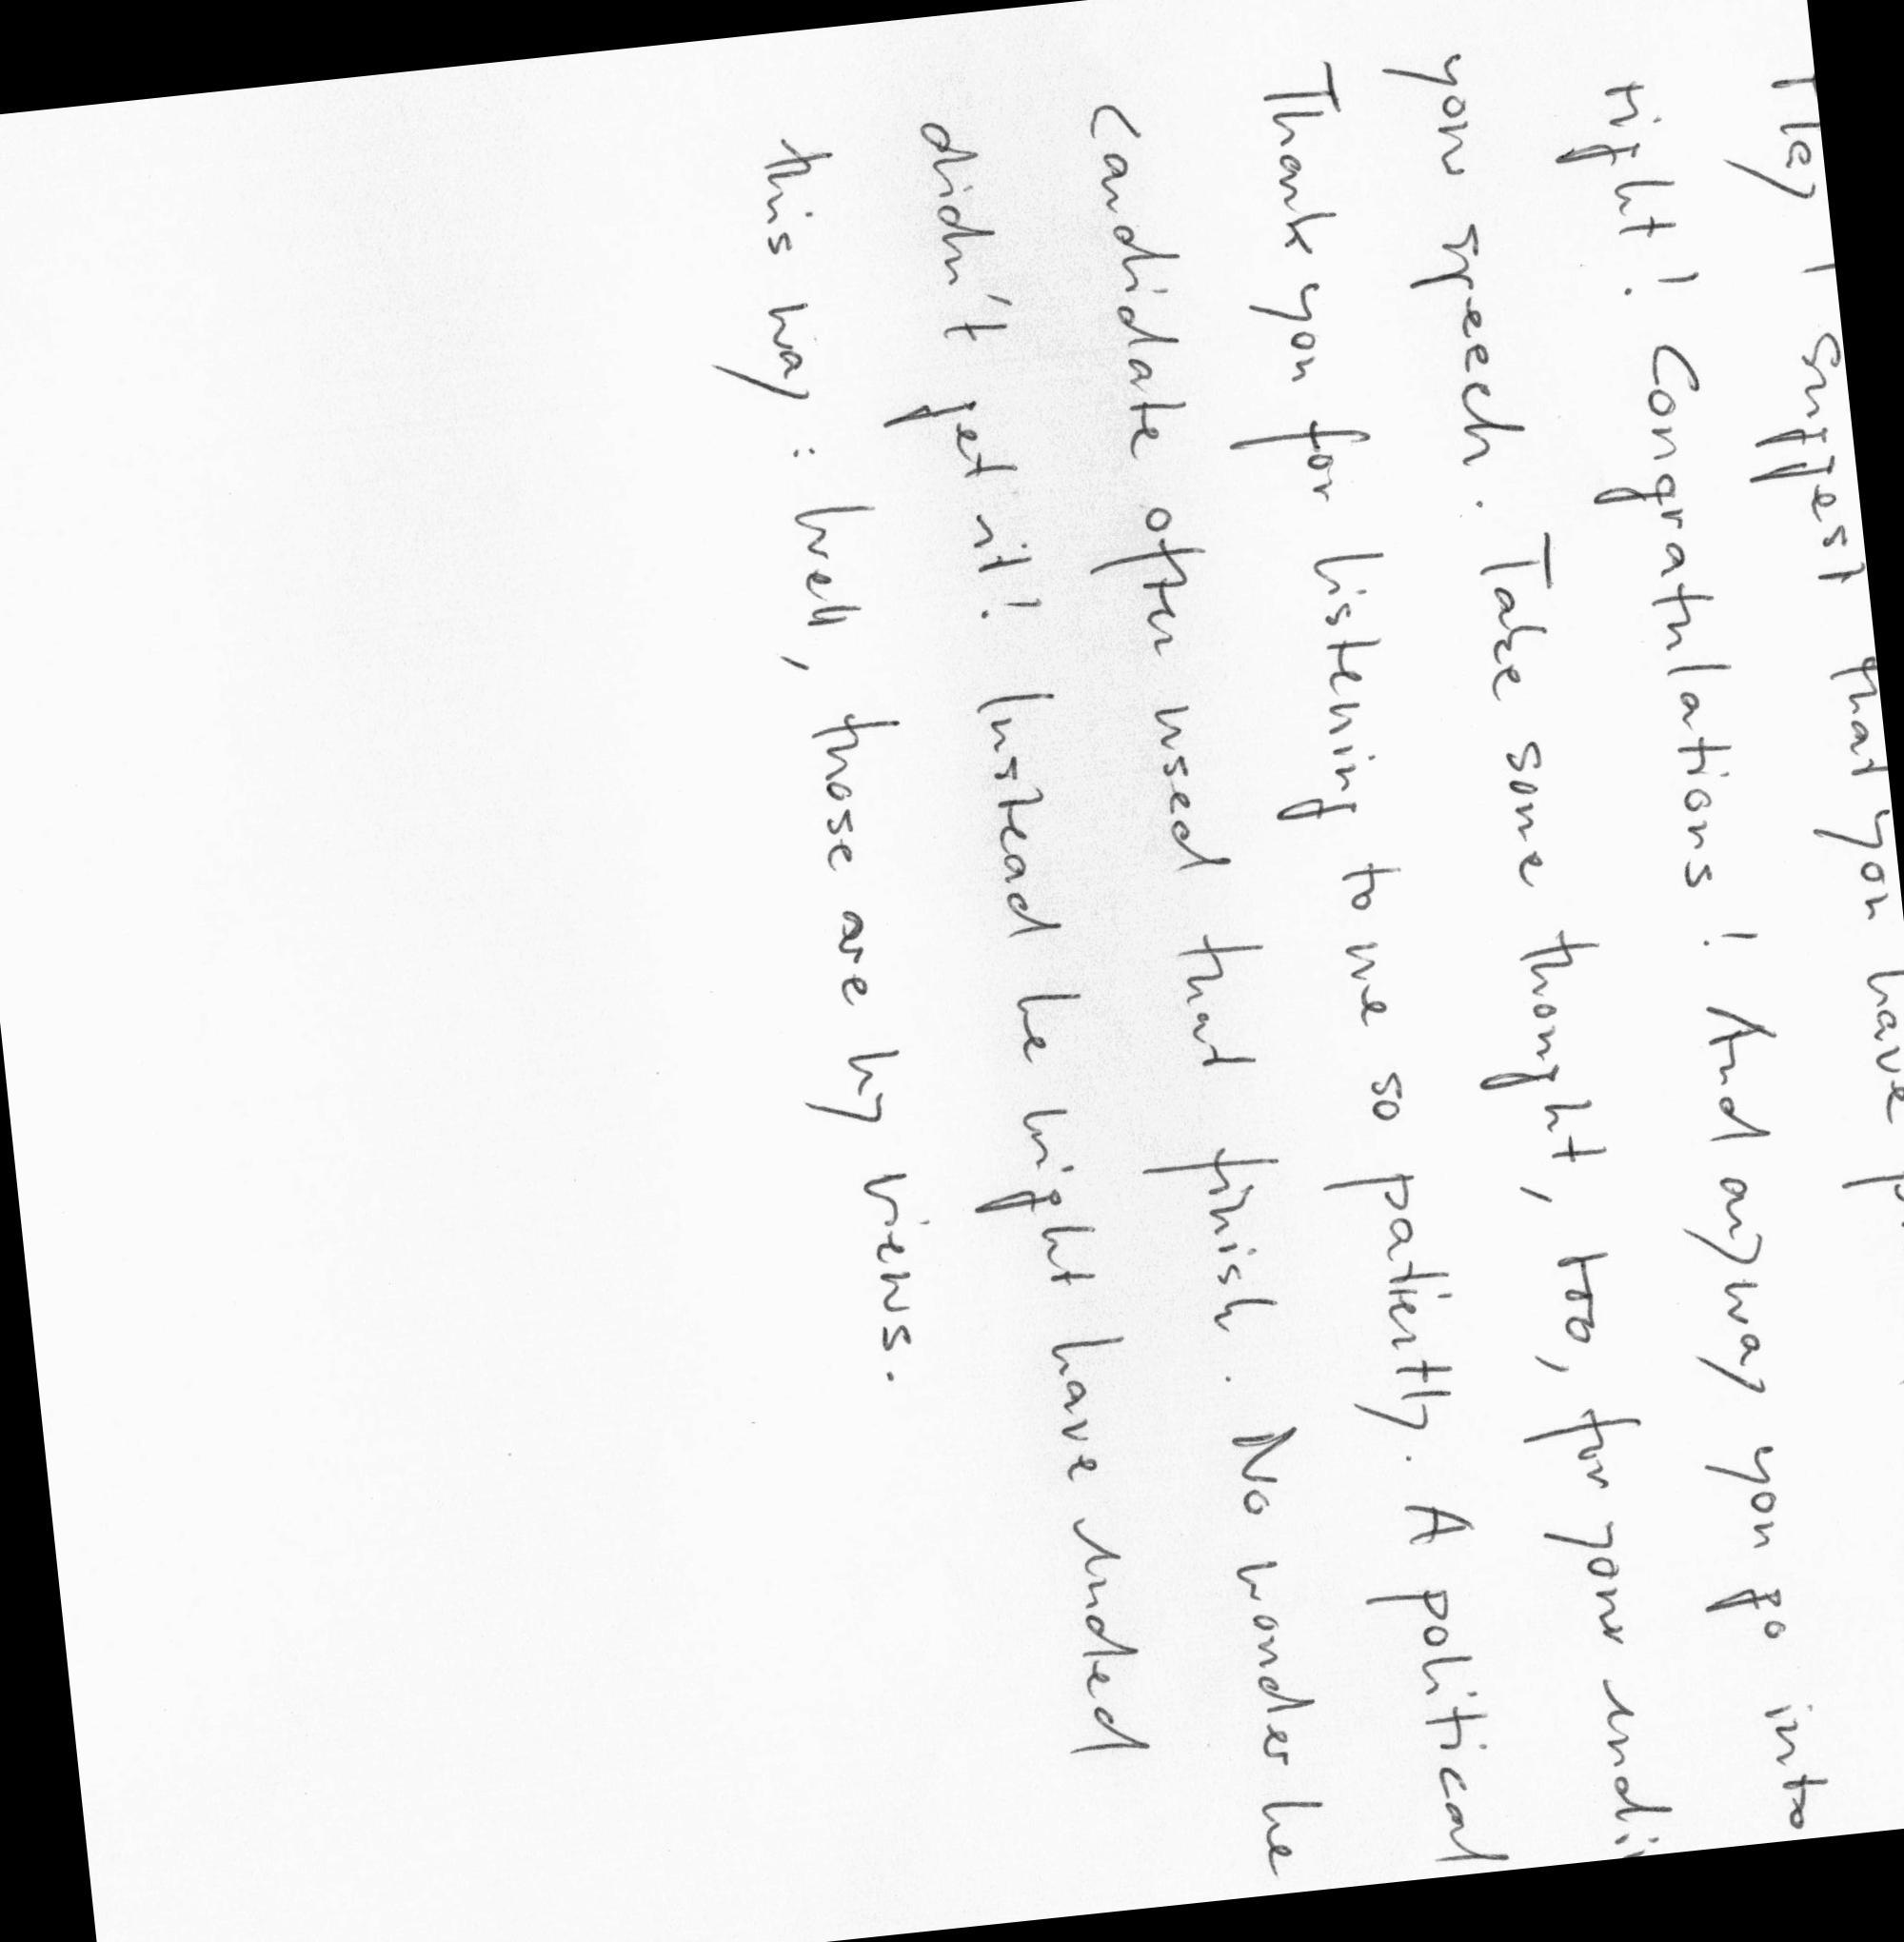 May I suggest that you have
right! Congratulations! And anyway you go into
your speech. Take some thought, too, for your undi
Thank you for listening to me so patiently. A political
candidate often used that finish. No wonder he
didn't get it! Instead he might have ended
this way: Well, those are my views.